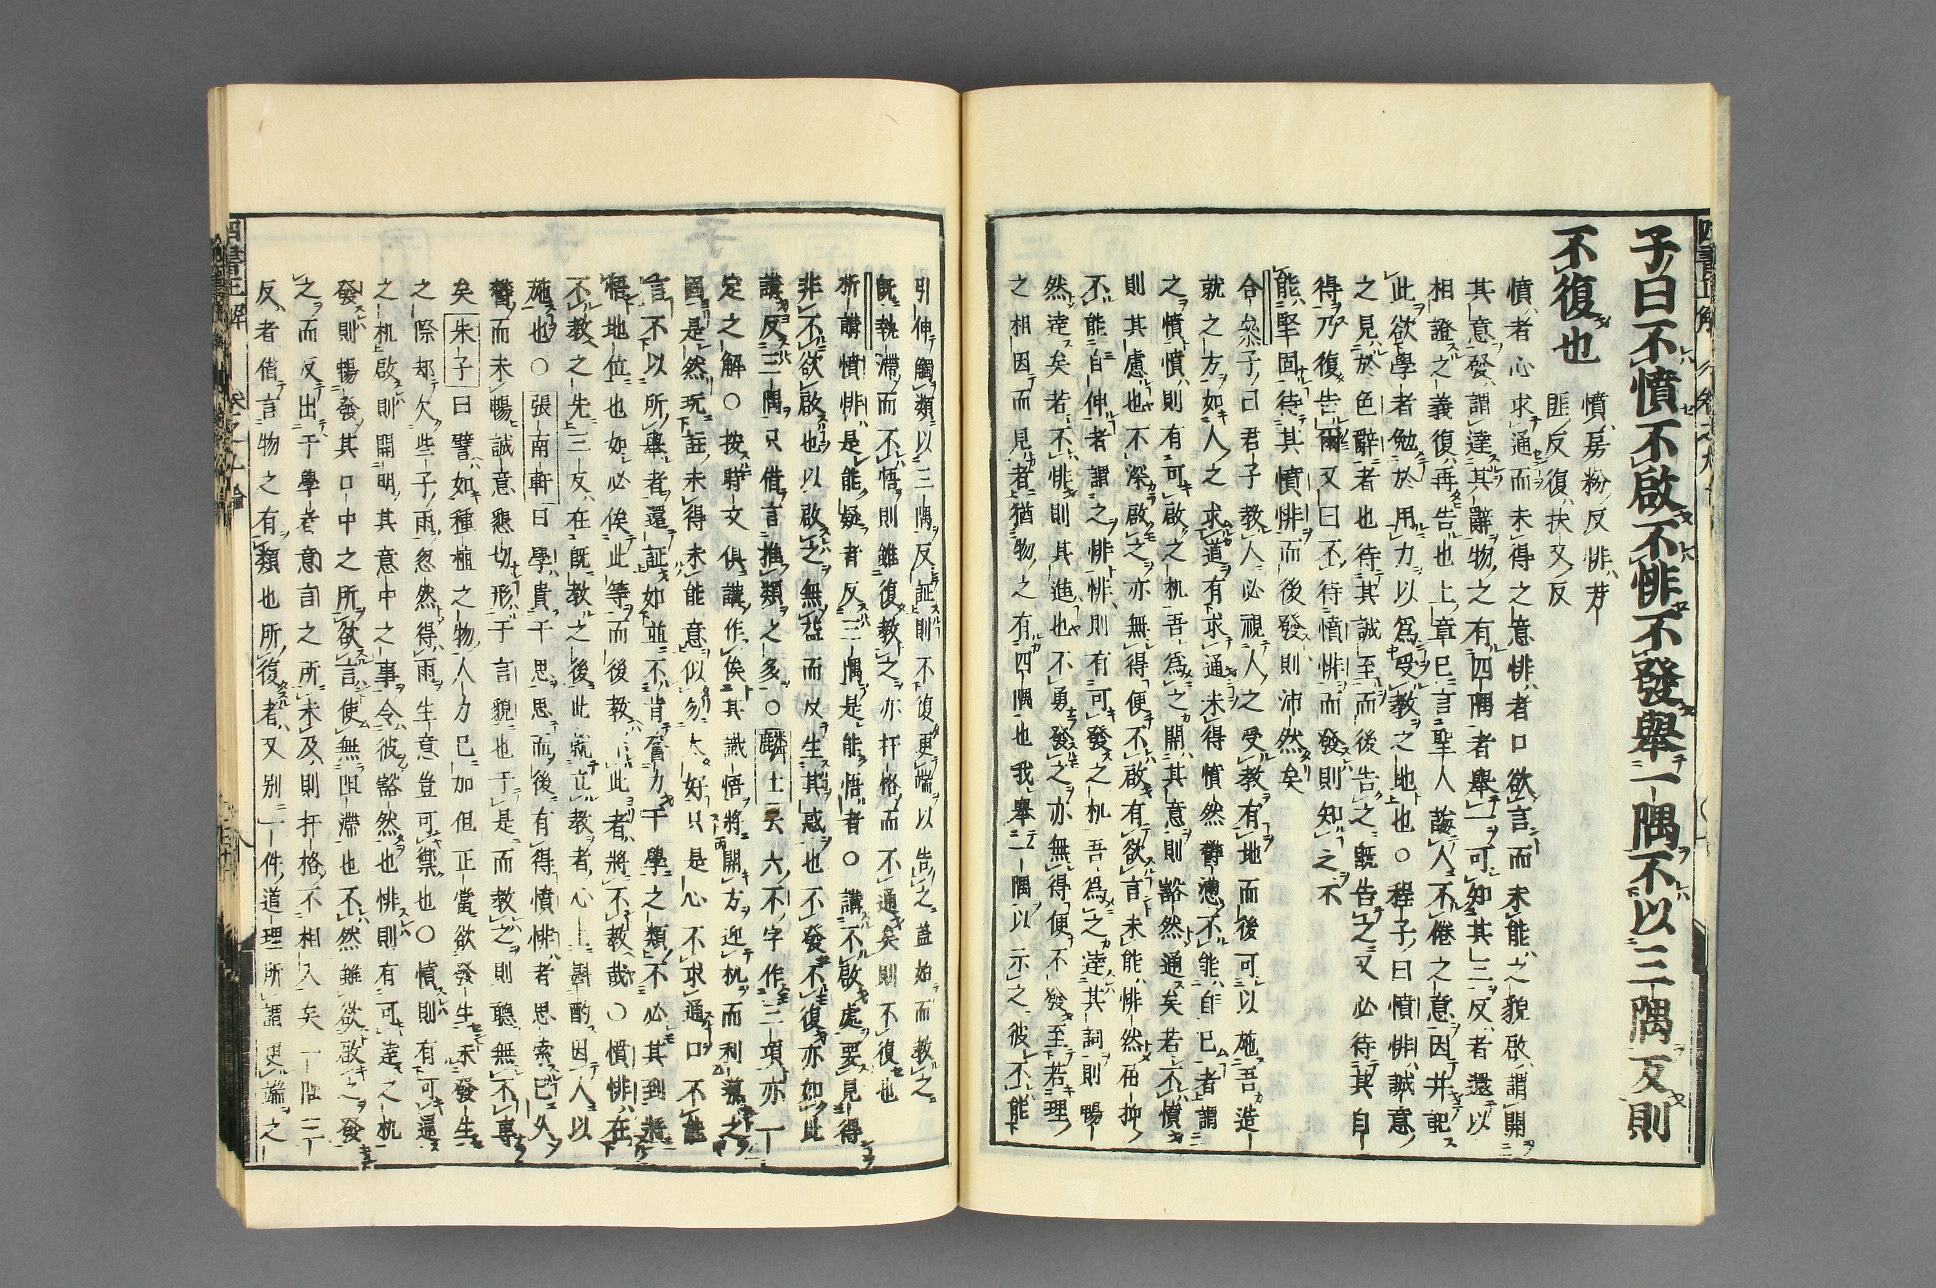 子曰不憤不啟不悱不發舉一隅不以三隅反則
不復也
憤房粉反悱芳
匪反復扶又反
憤者心求通而未得之意悱者口欲言而未能之貌啟謂開
其意發謂達其辭物之有四隅者舉一可知其三反者還以
相證之義復再告也上章已言聖人誨人不倦之意因并記
此欲學者勉於用力以為受教之地也○程子曰憤悱誠意
之見於色辭者也待其誠至而後告之既告之又必待其自
得乃復告爾又曰不待憤悱而發則知之不
能堅固待其憤悱而後發則沛然矣
合參子曰君子教人必視人之受教有地而後可以施吾造
就之方如人之求道有求通未得憤然鬱懣不能自已者謂
之憤憤則有可啟之机吾為之開其意則豁然通矣若不憤
則其慮也不深啟之亦無得便不啟有欲言未能悱然屈抑
不能自伸者謂之悱悱則有可發之机吾為之達其詞則暢
然達矣若不悱則其進也不勇發之亦無得便不發至若理
之相因而見者猶物之有四隅也我舉一隅以示之彼不能
引伸觸類以三隅反証則不復更端以告之蓋始而教之
既執滯而不悟則雖復教之亦扞格而不通矣則不復也
析講憤悱是能疑者反三隅是能悟者○講不啟處要見得
非不欲啟也以啟之無益而反生其惑也不發不復亦如此
講反三隅只借言推類之多○麟士云六不字作三項亦一
定之解○按時文俱講作俟其識悟將開方迎机而利導之
固是然玩註未得未能意似勿太好只是心不求通口不能
言不以所舉者還証如並不肯奮力于學之類不必其到將
悟地位也如必俟此等而後教此者將不教哉○憤悱在
不教之先三反在既教之後此就立教者心上斟酌因人以
施也○張南軒曰學貴于思思而後有得憤悱者思索已久
鬱而未暢誠意懇切形于言貌也于是而教之則聽無不專
矣朱子曰譬如種植之物人力已加但正當欲發生未發生
之際却欠些子雨忽然得雨生意豈可禦也○憤則有可通
之机啟則開明其意中之事令彼豁然也悱則有可達之机
發則暢發其口中之所欲言使無阻滯也不然雖欲啟之發
之而反出于學者意言之所未及則扞格不相入矣一隅三
反者借言物之有類也所復者又別一件道理所謂更端之